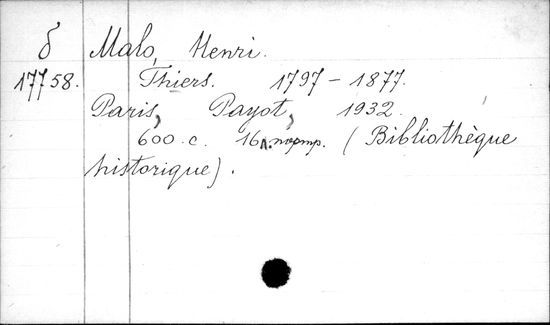 б Malo, Henri.
17758. Thiers. 1797 - 1877.
Paris, Payot, 1932.
600 c. 16 л. портр. (Bibliothèque
historique).